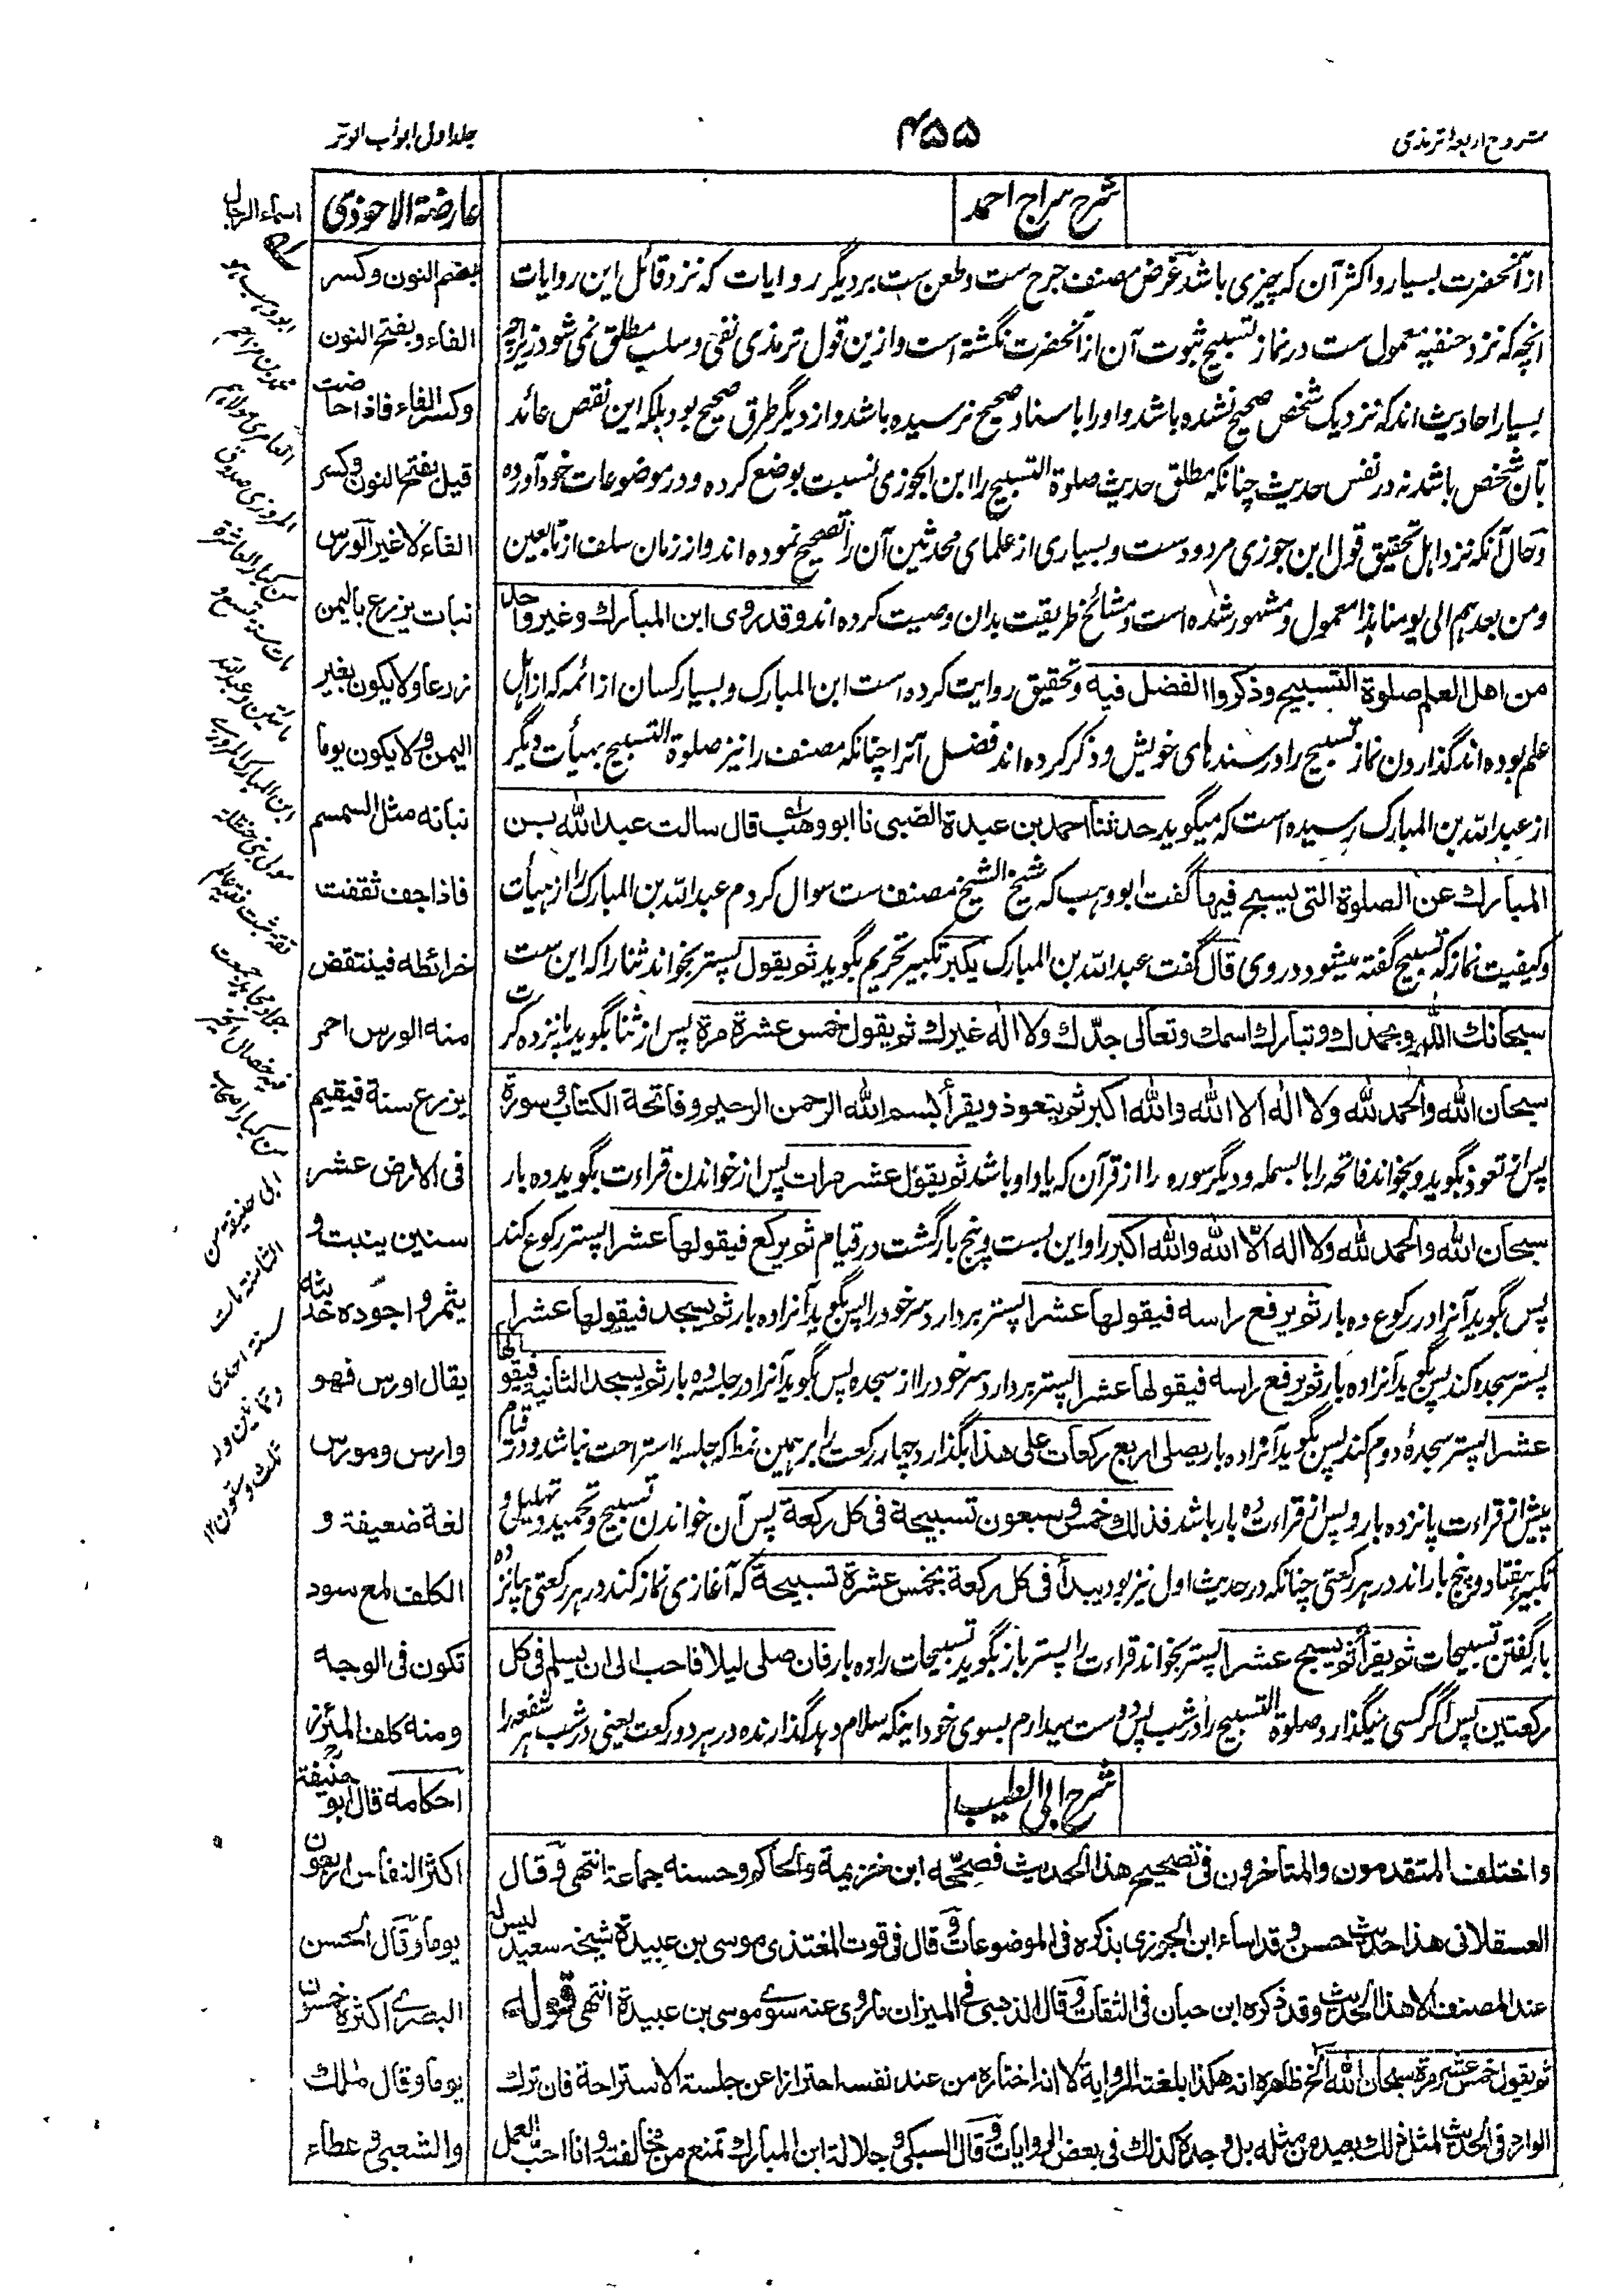 شروح اربعهٔ ترمذی
۴۵۵
جلد اول ابواب الوتر
شرح سراج احمد
از آنحضرت بسیار و اکثر آن که چیزی باشد غرض مصنف جرح ست و طعن ست بر دیگر روایات که نزد قائل این روایات
انچه که نزد حنفیه معمول ست در نماز تسبیح ثبوت آن از آنحضرت نگشته است و ازین قول ترمذی نفی و سلب مطلق نمی شود زیراچه
بسیار احادیث اند که نزدیک شخص صحیح نشده باشد و او را باسناد صحیح نرسیده باشد و از دیگر طرق صحیح بود بلکه این نقص عائد
بآن شخص باشد نه در نفس حدیث چنانکه مطلق حدیث صلوة التسبیح را ابن الجوزی نسبت بوضع کرده و در موضوعات خود آورده
و حال آنکه نزد اهل تحقیق قول ابن جوزی مردود ست و بسیاری از علمای محدثین آن را تصحیح نموده اند و از زمان سلف از تابعین
ومن بعدهم الی یومنا هذا معمول و مشهور شده است و مشائخ طریقت بدان وصیت کرده اند وقد روی ابن المبارك وغیر واحد
من اهل العلم صلوة التسبیح وذکروا الفضل فیه و تحقیق روایت کرده است ابن المبارک و بسیار کسان از ائمه که از اهل
علم بوده اند گذاردن نماز تسبیح را در سندهای خویش و ذکر کرده اند فضل آنرا چنانکه مصنف را نیز صلوة التسبیح بهیأت دیگر
از عبد الله بن المبارک رسیده است که میگوید حدثنا احمد بن عبدة الضبی نا ابو وهب قال سالت عبد الله بن
المبارك عن الصلوة التی یسبح فیها گفت ابو وهب که شیخ الشیخ مصنف ست سوال کردم عبد الله بن المبارک را از هیأت
و کیفیت نماز که تسبیح گفته میشود در وی قال گفت عبد الله بن المبارک یکبر تکبیر تحریم بگوید ثم یقول پستر بخواند ثنا را که این ست
سبحانك اللهم وبحمدك وتبارك اسمك وتعالی جدّك ولا اله غیرك ثم یقول خمس عشرة مرة پس از ثنا بگوید پانزده کرت
سبحان الله والحمد لله ولا اله الا الله والله اکبر ثم یتعوذ ویقرأ بسم الله الرحمن الرحیم وفاتحة الکتاب وسورة
پس از تعوذ بگوید و بخواند فاتحه را با بسمله و دیگر سوره را از قرآن که یاد او باشد ثم یقول عشر مرات پس از خواندن قراءت بگوید ده بار
سبحان الله والحمد لله ولا اله الّا الله والله اکبر را و این بست و پنج بار گشت در قیام ثم یرکع فیقولها عشرا پستر رکوع کند
پس بگوید آنرا در رکوع ده بار ثم یرفع راسه فیقولها عشرا پستر بردارد سر خود را پس بگوید آنرا ده بار ثم یسجد فیقولها عشرا
پستر سجده کند پس بگوید آنرا ده بار ثم یرفع راسه فیقولها عشرا پستر بردارد سر خود را از سجده پس بگوید آنرا در جلسه ده بار ثم یسجد الثانیة فیقولها
عشرا پستر سجدهٔ دوم کند پس بگوید آنرا ده بار یصلی اربع رکعات علی هذا بگذارد چهار رکعت را برهمین نمط که جلسهٔ استراحت نباشد و در قیام
پیش از قراءت پانزده بار و پس از قراءت ده بار باشد فذلك خمس وسبعون تسبیحة فی کل رکعة پس آن خواندن تسبیح و تحمید و تهلیل و
تکبیر هفتاد و پنج بار اند در هر رکعتی چنانکه در حدیث اول نیز بود یبدأ فی کل رکعة بخمس عشرة تسبیحة که آغازی نماز کند در هر رکعتی پانزده
بار گفتن تسبیحات ثم یقرأ ثم یسبح عشرا پستر بخواند قراءت را پستر باز بگوید تسبیحات را ده بار فان صلی لیلا فاحب الی ان یسلم فی کل
رکعتین پس اگر کسی میگذارد صلوة التسبیح را در شب پس دوست میدارم بسوی خود اینکه سلام دهد گذارنده در هر دو رکعت یعنی در شب هر شفعه را
شرح ابی الطیب
واختلف المتقدمون والمتأخرون فی تصحیح هذا الحدیث فصححه ابن خزیمة والحاکم وحسنه جماعة انتهی وقال
العسقلانی هذا حدیث حسن وقد اساء ابن الجوزی بذکره فی الموضوعات وقال فی قوت المغتذی موسی بن عبیدة شیخه سعید لیس له
عند المصنف الا هذا الحدیث وقد ذکره ابن حبان فی الثقات وقال الذهبی فی المیزان ما روی عنه سوی موسی بن عبیدة انتهی قوله
ثم یقول خمس عشر مرة سبحان الله الخ ظاهره انه هکذا بلغته الروایة لا انه اختاره من عند نفسه احترازا عن جلسة الاستراحة فان ترك
الوارد فی الحدیث لمثل ذلك بعید من مثله بل وجد کذلك فی بعض الروایات وقال السبکی وجلالة ابن المبارك تمنع من مخالفته وانا احب العمل
عارضة الاحوذی
بضم النون وکسر
الفاء وبفتح النون
وکسر الفاء فاذا حاضت
قیل بفتح النون وکسر
الفاء لا غیر الورس
نبات یزرع بالیمن
زرعا ولا یکون بغیر
الیمن ولا یکون یوما
نباته مثل السمسم
فاذا جف ثقفت
خرائطه فینتقض
منه الورس احمر
یزرع سنة فیقیم
فی الارض عشر
سنین ینبت و
یثمر واجوده حدیثه
یقال اورس فهو
وارس ومورس
لغة ضعیفة و
الکلف لمع سود
تکون فی الوجه
ومنه کلف المئزر
احکامه قال ابو حنیفة
اکثر النفاس اربعون
یوما وقال الحسن
البصری اکثره خمسون
یوما وقال ملك
والشعبی وعطاء
اسماء الرجال
ابو وهب هو
محمد بن مزاحم
العامری مولاهم
المروزی صدوق
من کبار العاشرة
مات سنة تسع و
مائتین وعبد الله
ابن المبارك المروزی
مولی بنی حنظلة
ثقة ثبت فقیه عالم
جواد مجاهد جمعت
فیه خصال الخیر
من کبار اصحاب
ابی حنیفة من
الثامنة مات
سنة احدی
وثمانین وله
ثلث وستون ۱۲